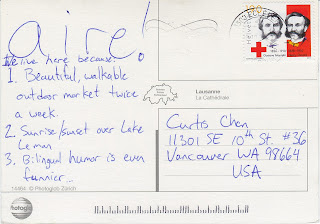 aire!
I'd live here because:
1. Beautiful, walkable
outdoor market twice
a week.
2. Sunrise/sunset over Lake
Leman
3. Bilingual humor is even
funnier...
Lausanne
La Cathédrale
Curtis Chen
11301 SE 10th St. #36
Vancouver WA 98664
USA
HELVETIA
© Photoglob Zürich
photoglob